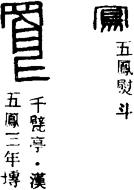 五鳳熨斗
千甓亭・漢
五鳳三年塼